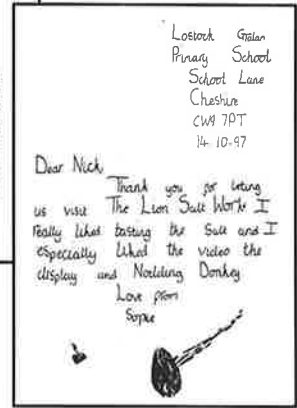 Lostock Gralam
Primary School
School Lane
Cheshire
CW9 7PT
14-10-97
Dear Nick
Thank you for leting
us visit The Lion Salt Works I
really liked tasting the Salt and I
especially liked the video the
display and Nodding Donkey
Love from
Sophie